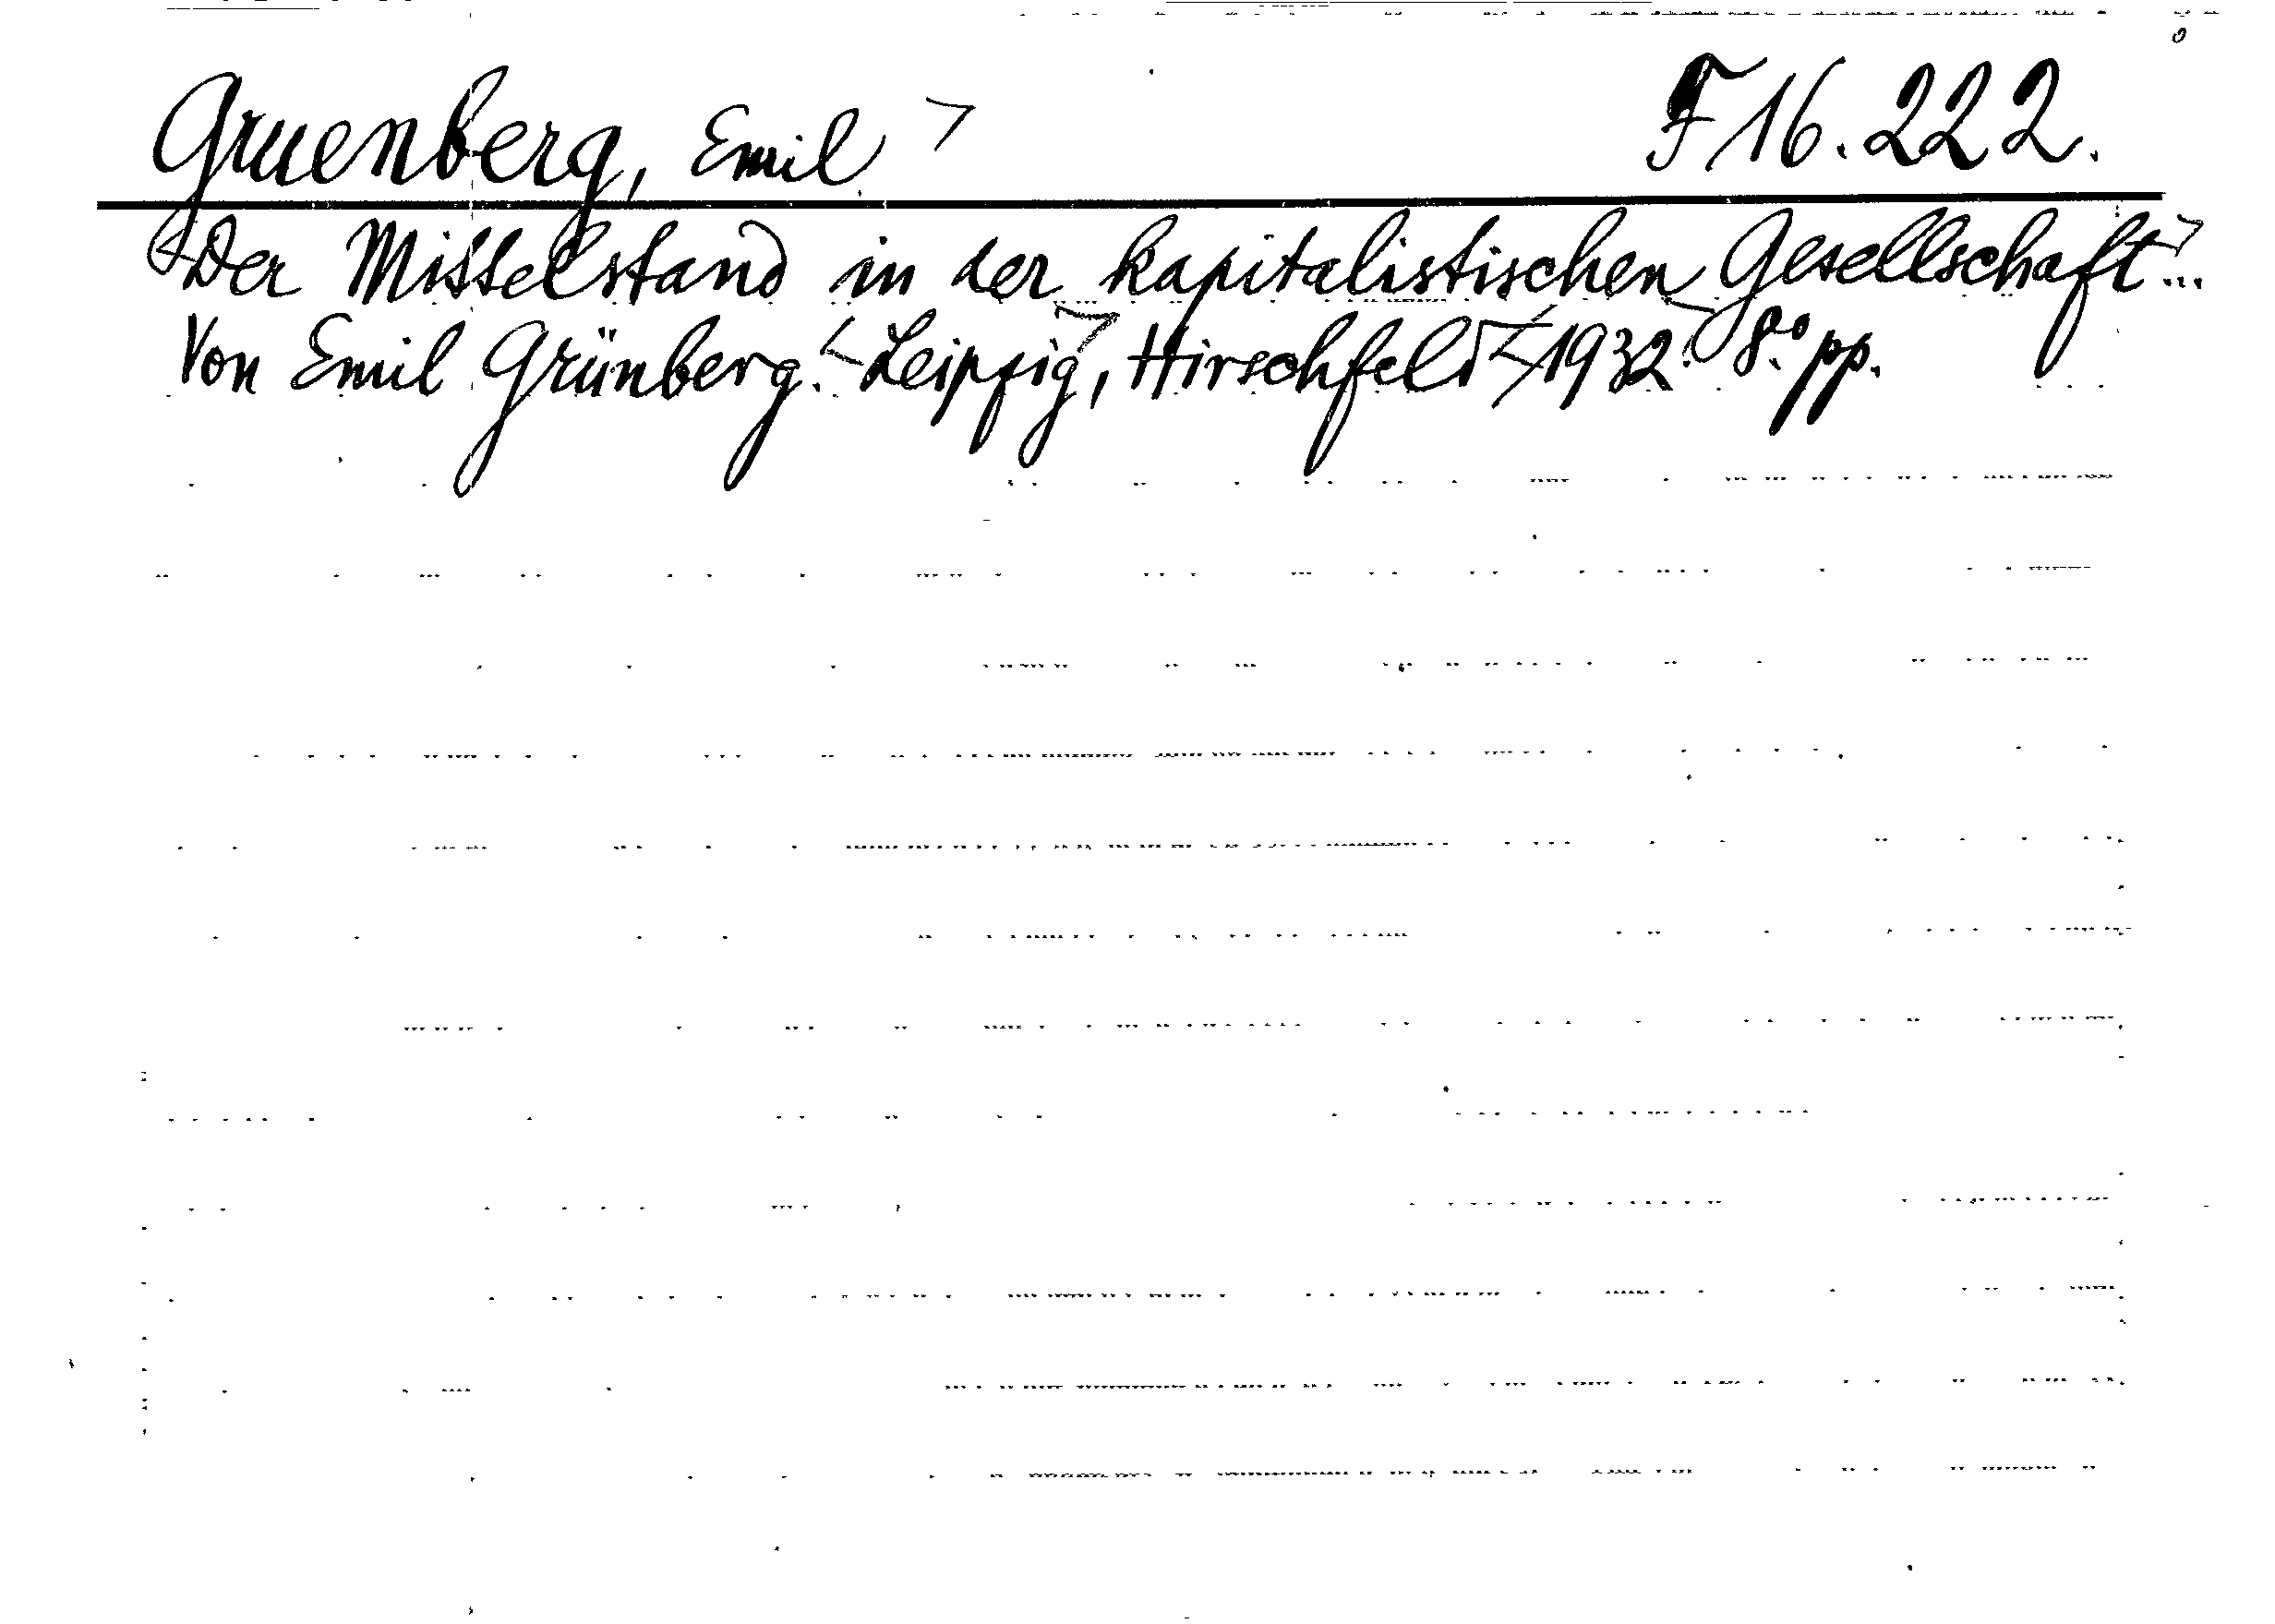 Gruenberg, Emil F 16.222.
Der Mittelstand in der kapitalistischen Gesellschaft...
Von Emil Grünberg. Leipzig, Hirschfeld 1932. 8.° pp.